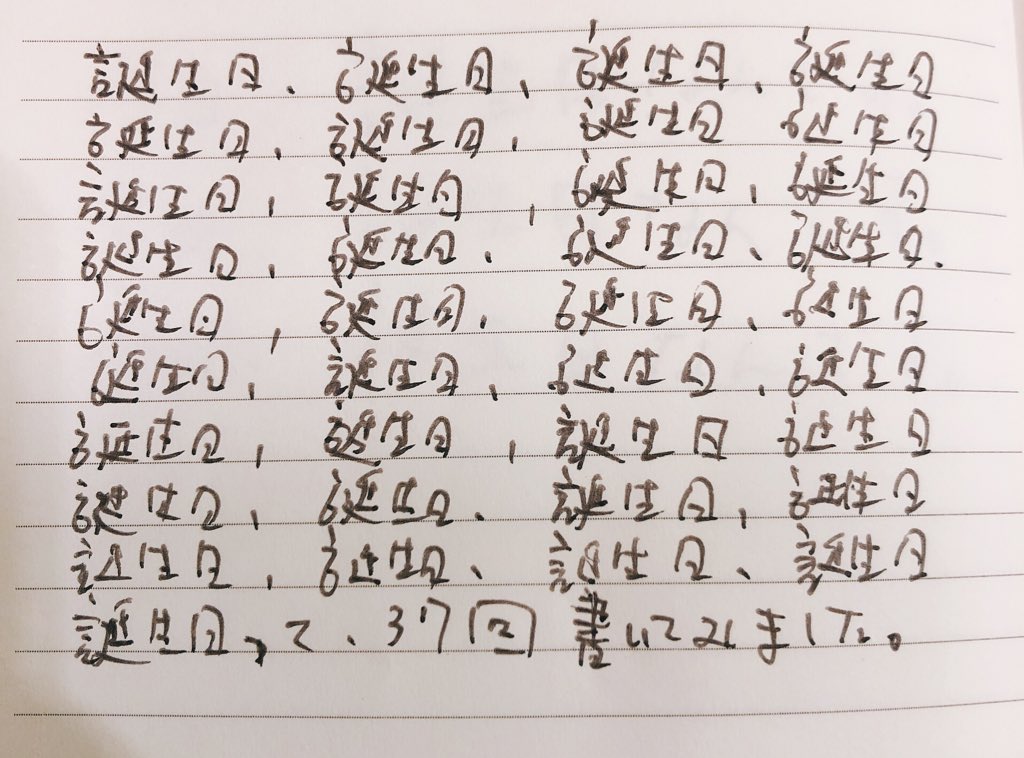 誕生日、誕生日、誕生日、誕生日
誕生日、誕生日、誕生日 誕生日
誕生日、誕生日、誕生日、誕生日
誕生日、誕生日、誕生日、誕生日、
誕生日、誕生日、誕生日、誕生日
誕生日、誕生日、誕生日、誕生日
誕生日、誕生日、誕生日 誕生日
誕生日、誕生日、誕生日、誕生日
誕生日、誕生日、誕生日、誕生日
誕生日、て、37回書いてみました。